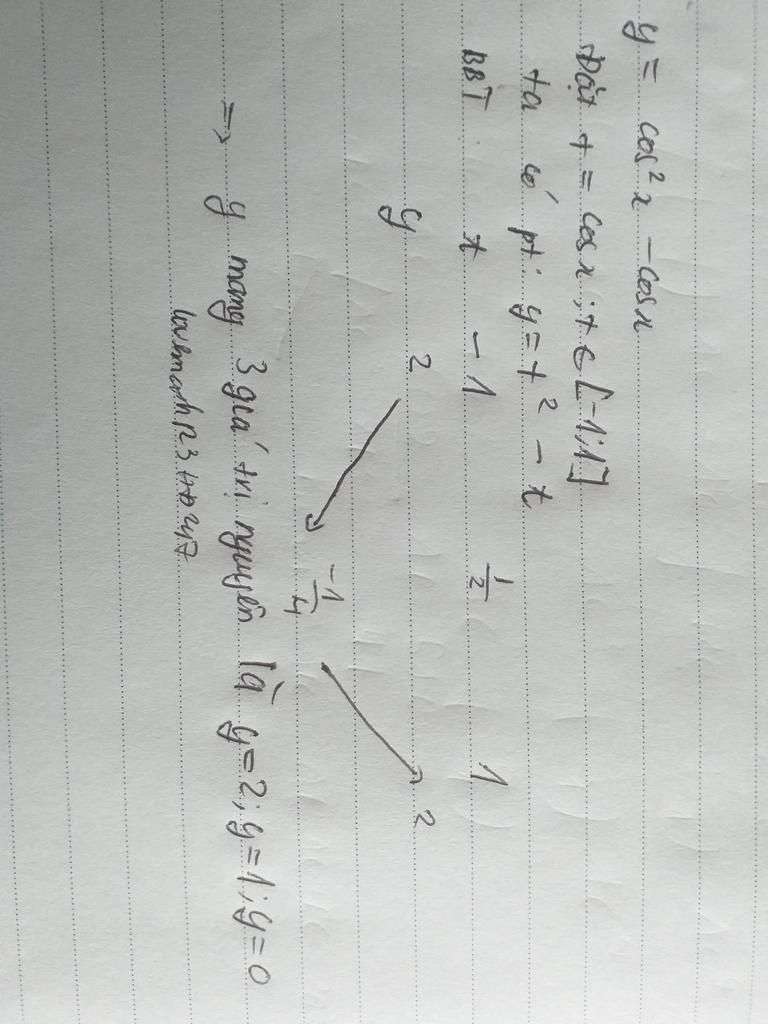 y = cos²x - cosx
Đặt t = cosx ; t ∈ [-1;1]
ta có pt: y = t² - t
BBT t -1 1/2 1
y 2 -1/4 2
=> y mang 3 giá trị nguyên là y=2; y=1; y=0